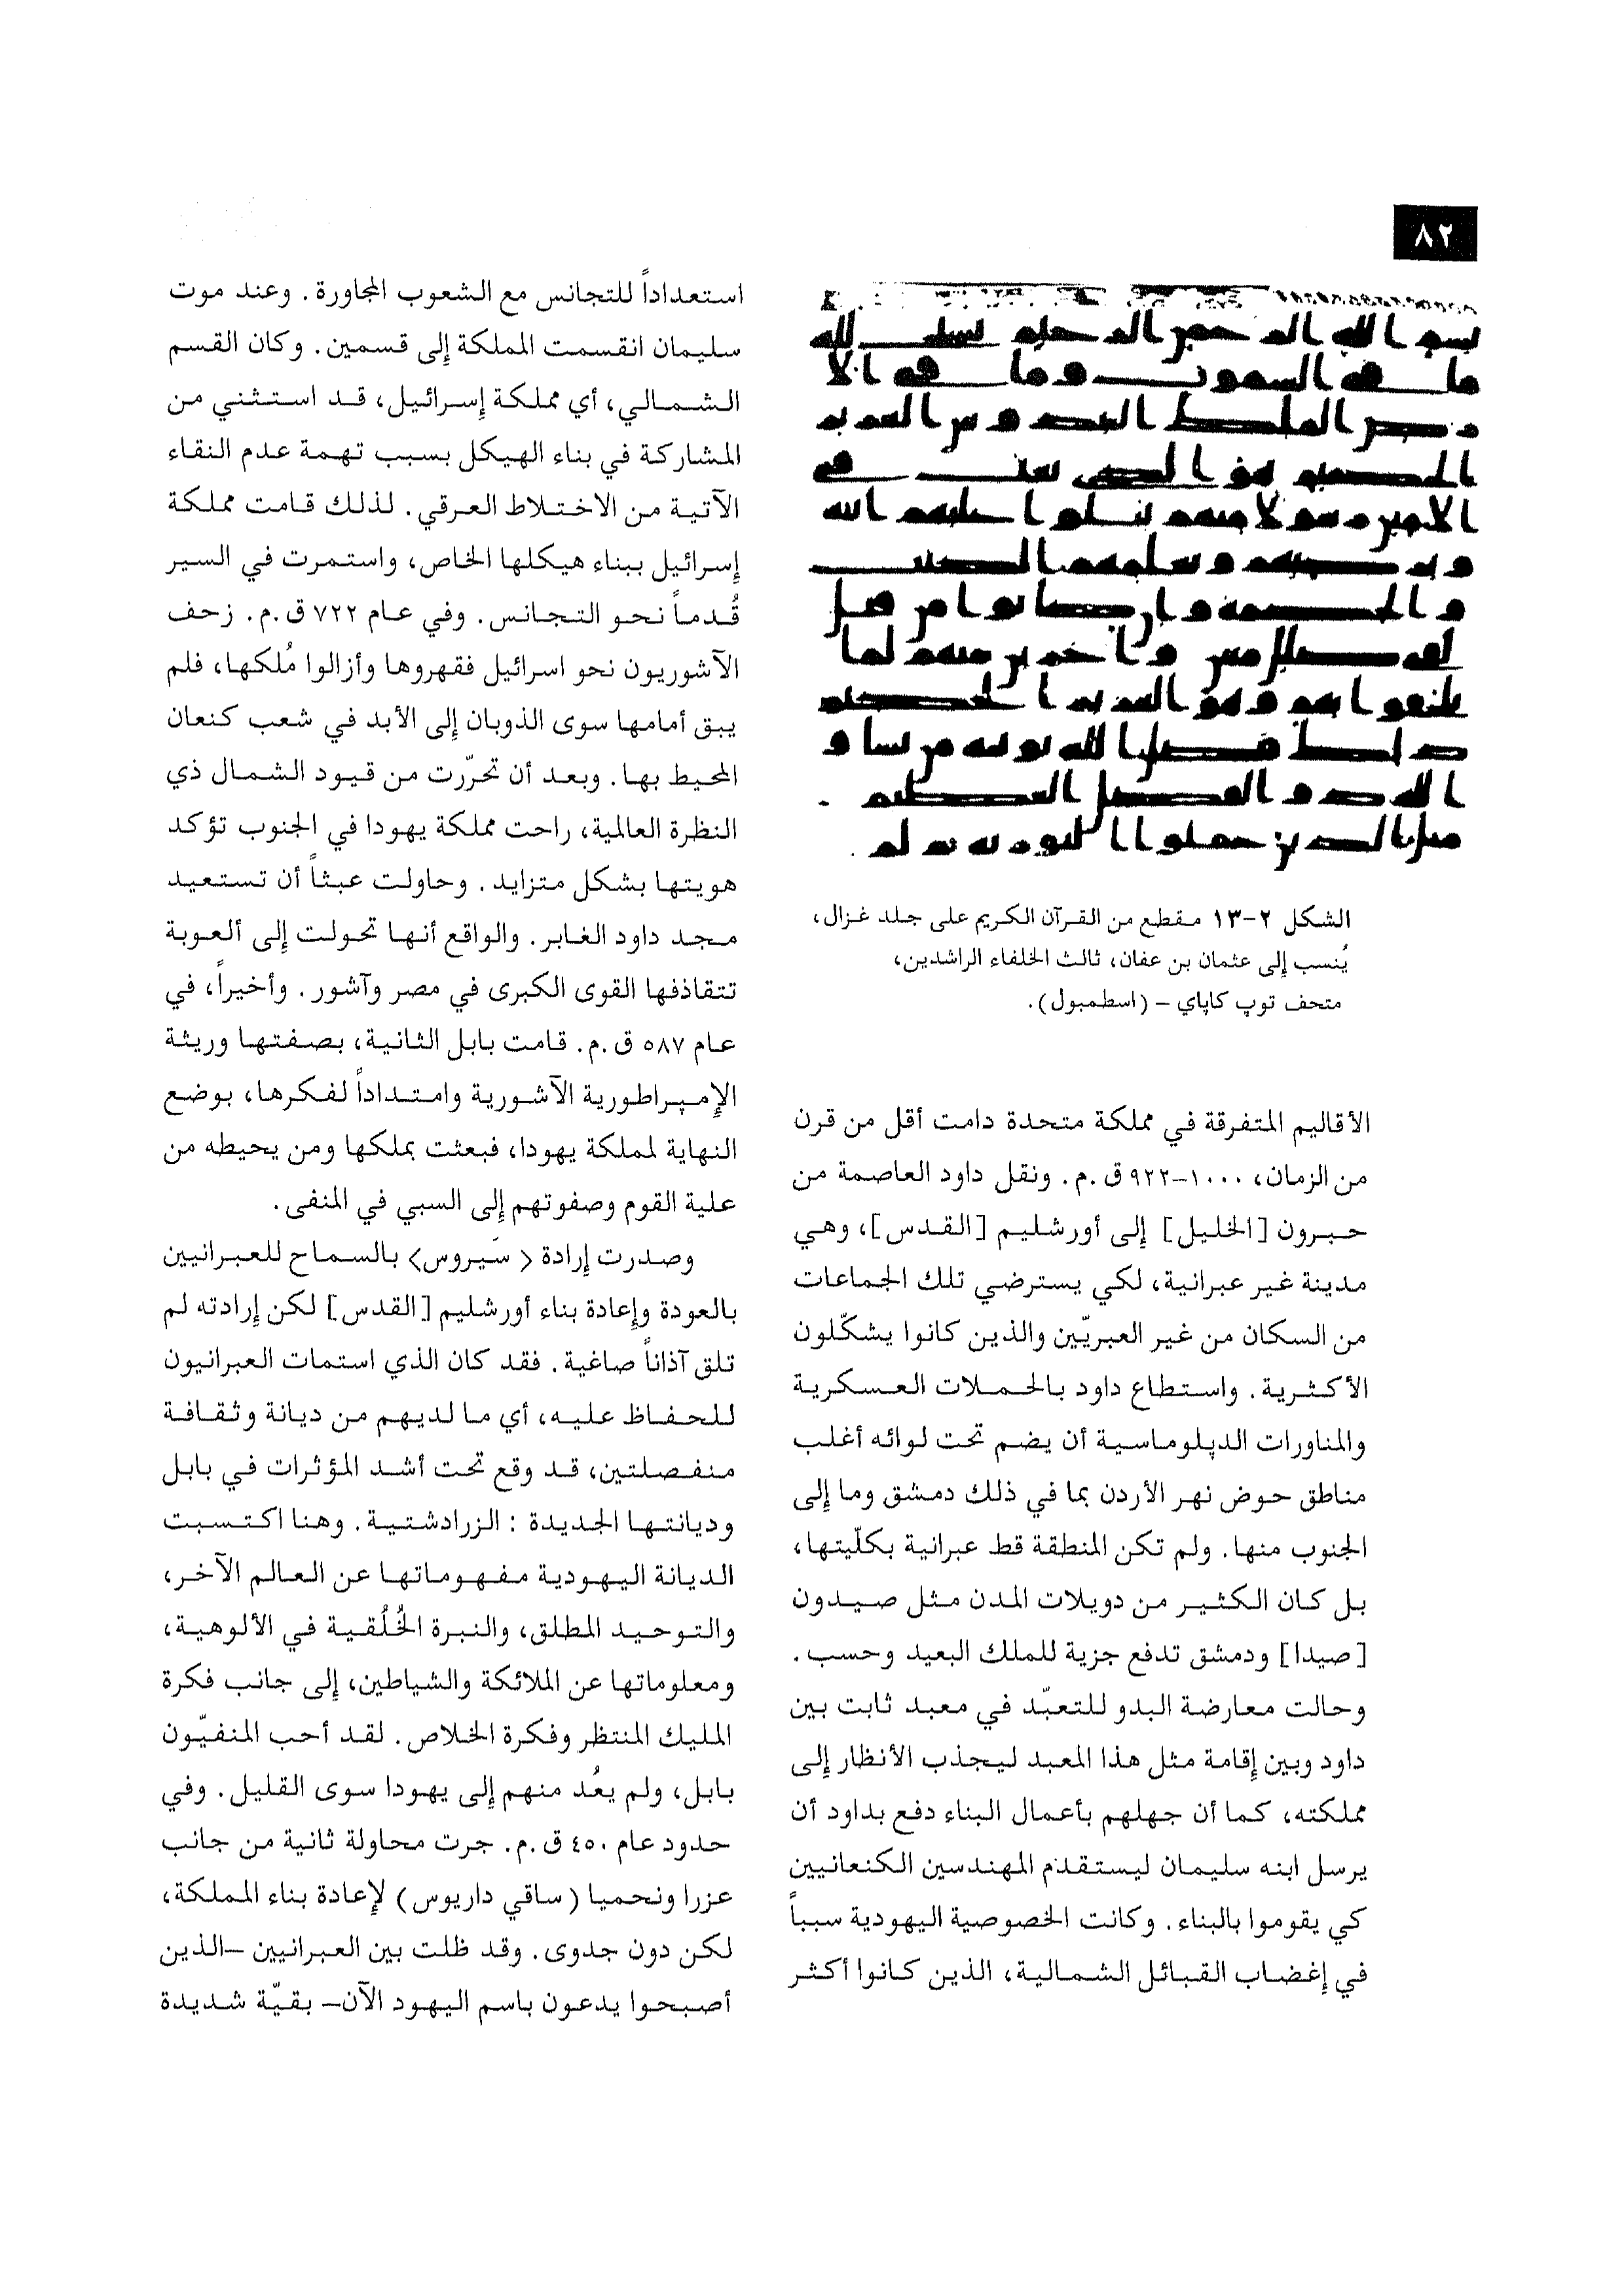 ٨٢
بسم الله الرحمن الرحيم يسبح لله
ما في السموت وما في الا
رض الملك القدوس العزيز
الحكيم هو الذي بعث في
الاميين رسولا منهم يتلوا عليهم ايته
ويزكيهم ويعلمهم الكتب
والحكمة وان كانوا من قبل
لفي ضلل مبين واخرين منهم لما
يلحقوا بهم وهو العزيز الحكيم
ذلك فضل الله يوتيه من يشا و
الله ذو الفضل العظيم
مثل الذين حملوا التورية ثم لم
الشكل ٢-١٣ مقطع من القرآن الكريم على جلد غزال،
يُنسب إلى عثمان بن عفان، ثالث الخلفاء الراشدين،
متحف توپ كاپاي - (اسطمبول).
الأقاليم المتفرقة في مملكة متحدة دامت أقل من قرن
من الزمان، ١٠٠٠-٩٢٢ ق.م. ونقل داود العاصمة من
حبرون [الخليل] إلى أورشليم [القدس]، وهي
مدينة غير عبرانية، لكي يسترضي تلك الجماعات
من السكان من غير العبريّين والذين كانوا يشكّلون
الأكثرية. واستطاع داود بالحملات العسكرية
والمناورات الدپلوماسية أن يضم تحت لوائه أغلب
مناطق حوض نهر الأردن بما في ذلك دمشق وما إلى
الجنوب منها. ولم تكن المنطقة قط عبرانية بكلّيتها،
بل كان الكثير من دويلات المدن مثل صيدون
[صيدا] ودمشق تدفع جزية للملك البعيد وحسب.
وحالت معارضة البدو للتعبّد في معبد ثابت بين
داود وبين إقامة مثل هذا المعبد ليجذب الأنظار إلى
مملكته، كما أن جهلهم بأعمال البناء دفع بداود أن
يرسل ابنه سليمان ليستقدم المهندسين الكنعانيين
كي يقوموا بالبناء. وكانت الخصوصية اليهودية سبباً
في إغضاب القبائل الشمالية، الذين كانوا أكثر
استعداداً للتجانس مع الشعوب المجاورة. وعند موت
سليمان انقسمت المملكة إلى قسمين. وكان القسم
الشمالي، أي مملكة إسرائيل، قد استثني من
المشاركة في بناء الهيكل بسبب تهمة عدم النقاء
الآتية من الاختلاط العرقي. لذلك قامت مملكة
إسرائيل ببناء هيكلها الخاص، واستمرت في السير
قُدماً نحو التجانس. وفي عام ٧٢٢ ق.م. زحف
الآشوريون نحو اسرائيل فقهروها وأزالوا مُلكها، فلم
يبق أمامها سوى الذوبان إلى الأبد في شعب كنعان
المحيط بها. وبعد أن تحرّرت من قيود الشمال ذي
النظرة العالمية، راحت مملكة يهودا في الجنوب تؤكد
هويتها بشكل متزايد. وحاولت عبثاً أن تستعيد
مجد داود الغابر. والواقع أنها تحولت إلى ألعوبة
تتقاذفها القوى الكبرى في مصر وآشور. وأخيراً، في
عام ٥٨٧ ق.م. قامت بابل الثانية، بصفتها وريثة
الإمپراطورية الآشورية وامتداداً لفكرها، بوضع
النهاية لمملكة يهودا، فبعثت بملكها ومن يحيطه من
علية القوم وصفوتهم إلى السبي في المنفى.
وصدرت إرادة < سَيروس> بالسماح للعبرانيين
بالعودة وإعادة بناء أورشليم [القدس] لكن إرادته لم
تلق آذاناً صاغية. فقد كان الذي استمات العبرانيون
للحفاظ عليه، أي ما لديهم من ديانة وثقافة
منفصلتين، قد وقع تحت أشد المؤثرات في بابل
وديانتها الجديدة : الزرادشتية. وهنا اكتسبت
الديانة اليهودية مفهوماتها عن العالم الآخر،
والتوحيد المطلق، والنبرة الخُلُقية في الألوهية،
ومعلوماتها عن الملائكة والشياطين، إلى جانب فكرة
المليك المنتظر وفكرة الخلاص. لقد أحب المنفيّون
بابل، ولم يعُد منهم إلى يهودا سوى القليل. وفي
حدود عام ٤٥٠ ق.م. جرت محاولة ثانية من جانب
عزرا ونحميا (ساقي داريوس) لإعادة بناء المملكة،
لكن دون جدوى. وقد ظلت بين العبرانيين -الذين
أصبحوا يدعون باسم اليهود الآن- بقيّة شديدة